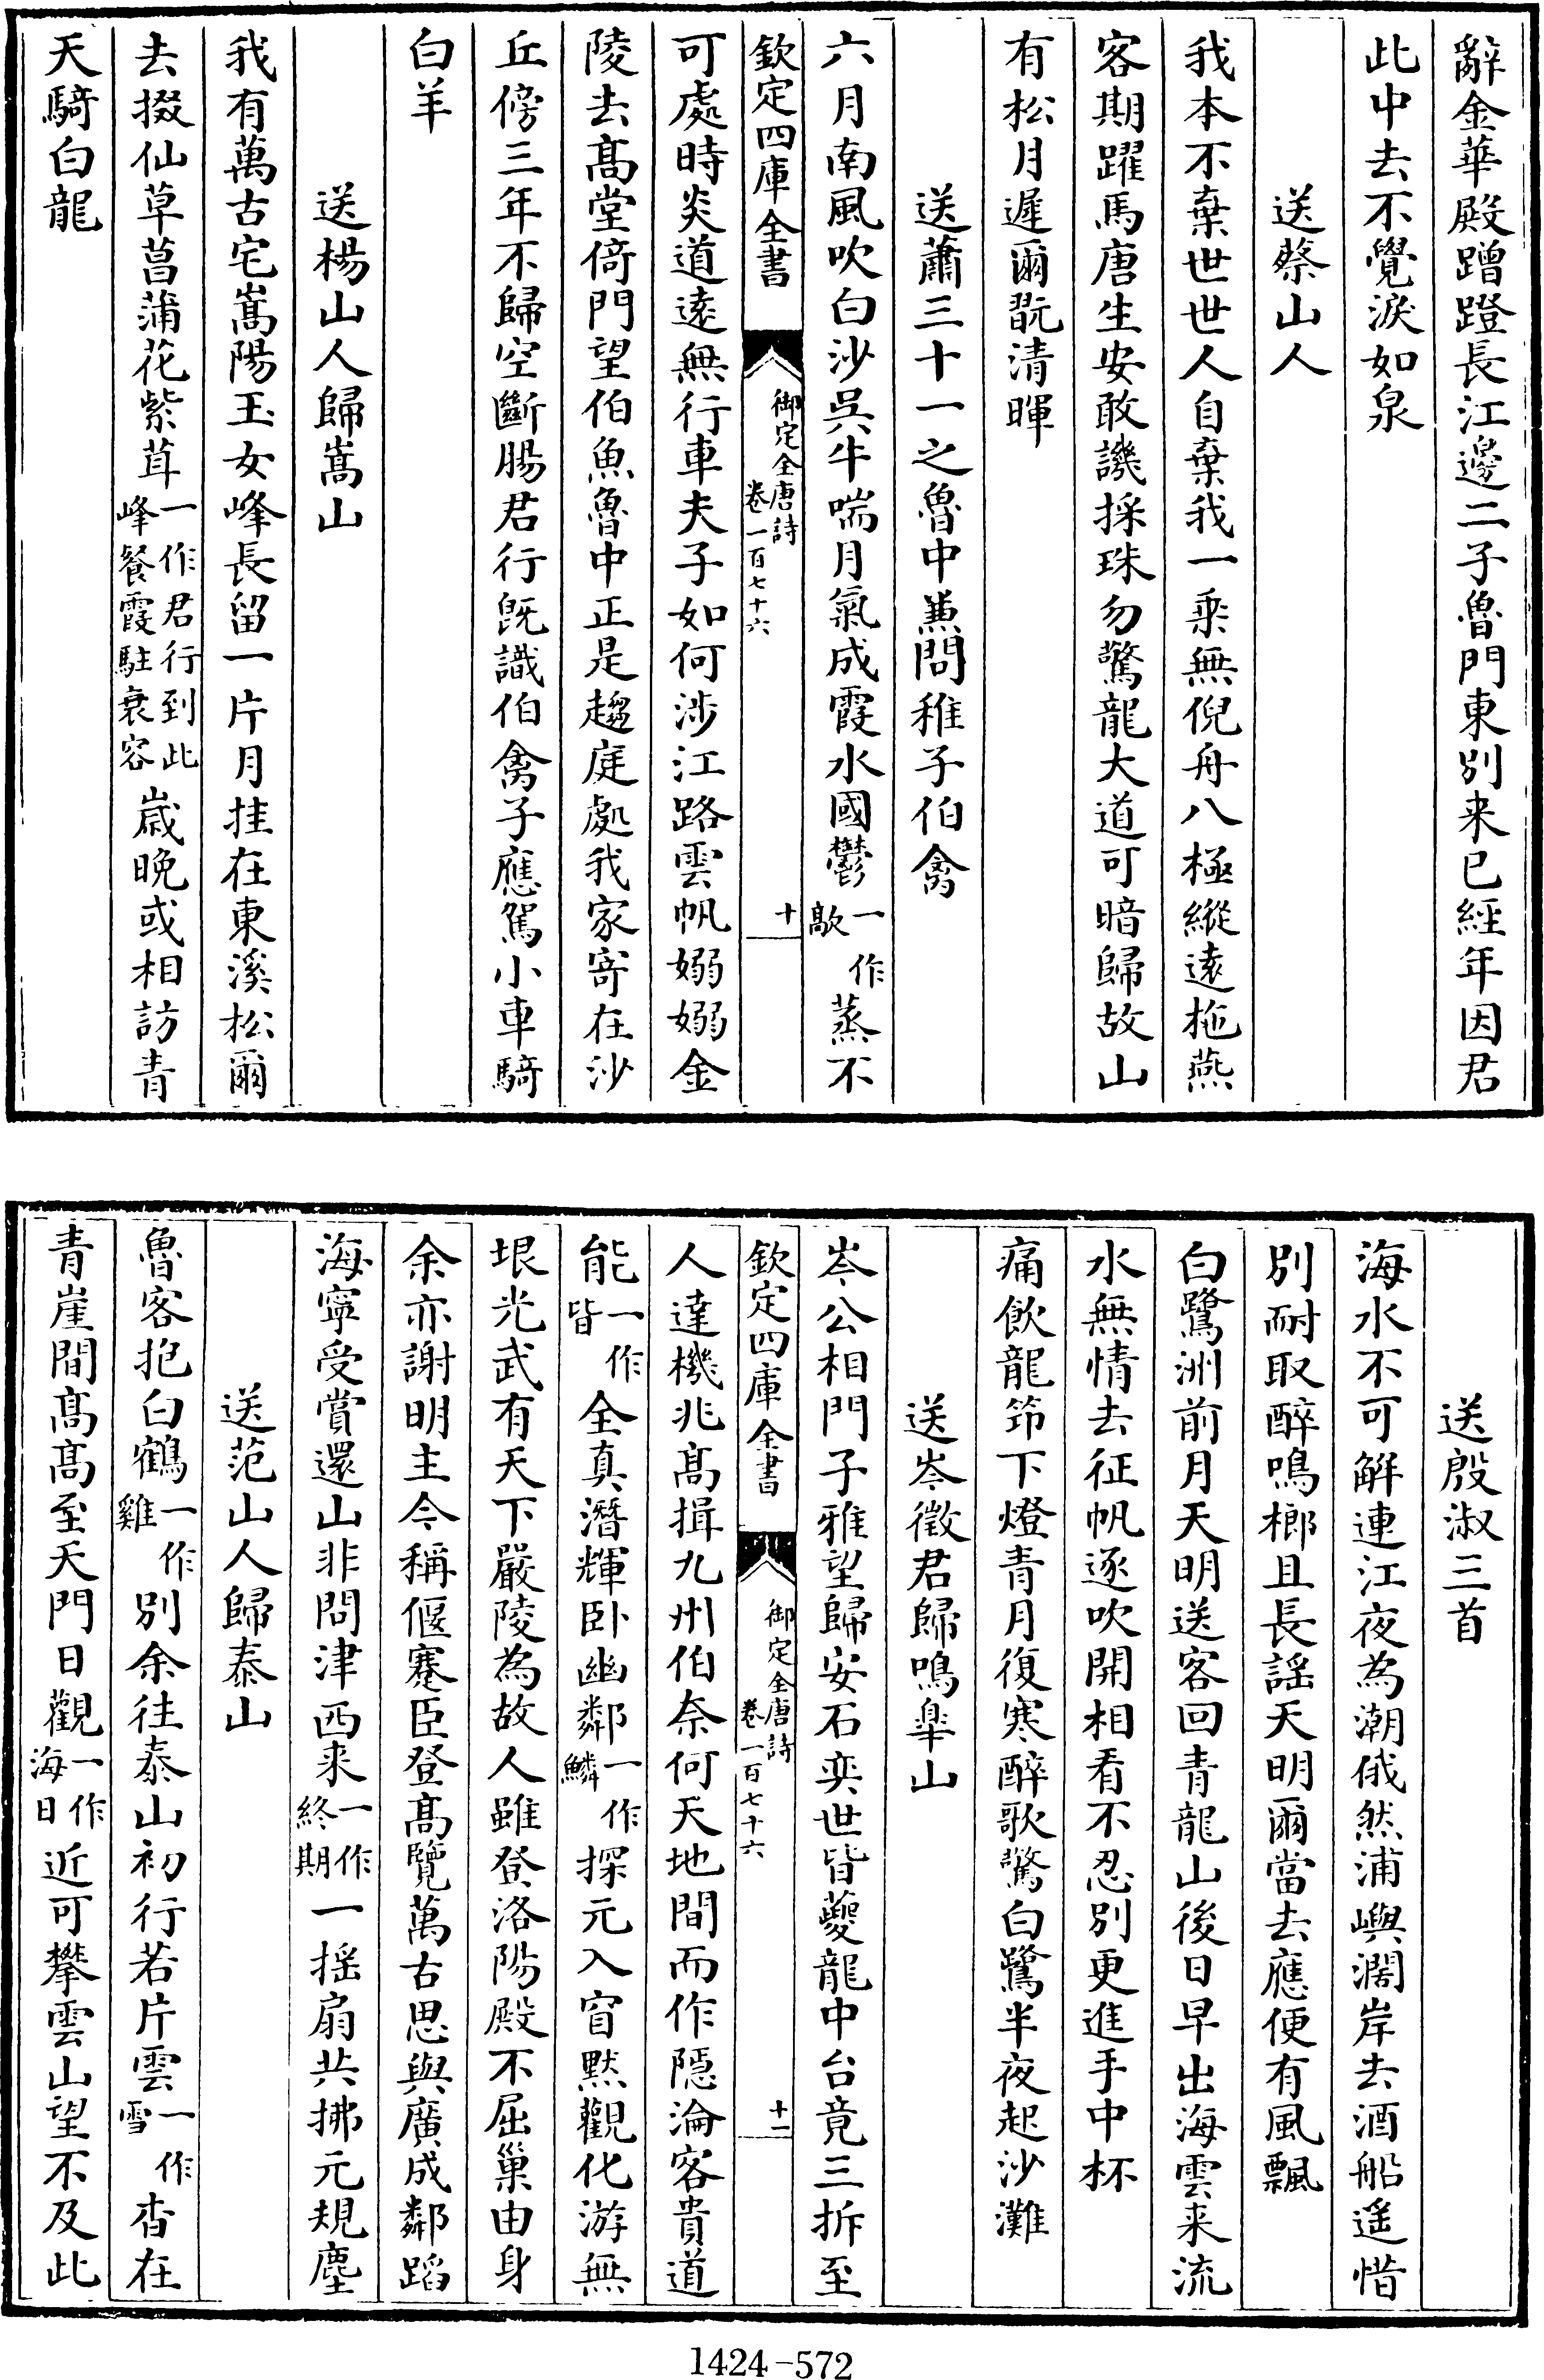 辭金華殿蹭蹬長江邊二子魯門東別来已經年因君
此中去不覺淚如泉
送蔡山人
我本不棄世世人自棄我一乘無倪舟八極縱遠拖燕
客期躍馬唐生安敢譏採珠勿驚龍大道可暗歸故山
有松月遲爾翫清暉
送蕭三十一之魯中兼問稚子伯禽
六月南風吹白沙吳牛喘月氣成霞水國鬱一作歊蒸不
欽定四庫全書
御定全唐詩
卷一百七十六
十
可處時炎道遠無行車夫子如何涉江路雲帆嫋嫋金
陵去髙堂倚門望伯魚魯中正是趨庭處我家寄在沙
丘傍三年不歸空斷腸君行旣識伯禽子應駕小車騎
白羊
送楊山人歸嵩山
我有萬古宅嵩陽玉女峰長留一片月挂在東溪松爾
去掇仙草菖蒲花紫茸一作君行到此峰餐霞駐衰容歲晚或相訪青
天騎白龍
送殷淑三首
海水不可解連江夜為潮俄然浦嶼濶岸去酒船遥惜
別耐取醉鳴榔且長謡天明爾當去應便有風飄
白鷺洲前月天明送客回青龍山後日早出海雲来流
水無情去征帆逐吹開相看不忍別更進手中杯
痛飲龍笻下燈青月復寒醉歌驚白鷺半夜起沙灘
送岑徵君歸鳴臯山
岑公相門子雅望歸安石奕世皆夔龍中台竟三拆至
欽定四庫全書
御定全唐詩
卷一百七十六
十一
人達機兆髙揖九州伯奈何天地間而作隱淪客貴道
能一作皆全真潛輝卧幽鄰一作鱗探元入窅默觀化游無
垠光武有天下嚴陵為故人雖登洛陽殿不屈巢由身
余亦謝明主今稱偃蹇臣登髙覽萬古思與廣成鄰蹈
海寧受賞還山非問津西来一作終期一揺扇共拂元規塵
送范山人歸泰山
魯客抱白鶴一作雞別余往泰山初行若片雲一作雪杳在
青崖間髙髙至天門日觀一作海日近可攀雲山望不及此
1424-572